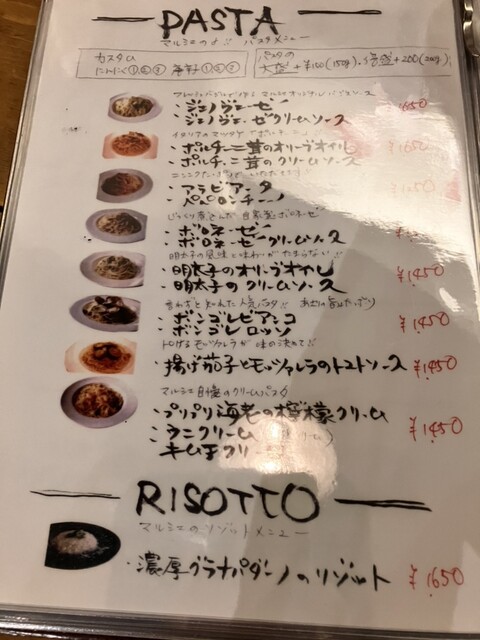 PASTA
マルシェの♪!! パスタメニュー
カスタム
にんにく①②③ 辛子①②③
パスタの
大盛+¥100(150g)・倍盛+200(200g)
・ジェノヴェーゼ
・ジェノヴェーゼクリームソース
・ポルチーニ茸のオリーブオイル
・ポルチーニ茸のクリームソース
¥1650
・アラビアータ
・ペペロンチーノ
じっくり煮こんだ 自家製ボロネーゼ
・ボロネーゼ
・ボロネーゼクリームソース
明太子の風味と味わいがたまらない!!
・明太子のオリーブオイル
・明太子のクリームソース
¥1450
言わずと知れた人気パスタ!! あさりの旨みたっぷり
・ボンゴレビアンコ
・ボンゴレロッソ
¥1450
とろけるモッツァレラが味の決めて!!
・揚げ茄子とモッツァレラのトマトソース ¥1450
マルシェ自慢のクリームパスタ
・プリプリ海老の檸檬クリーム
・ウニクリーム
・キムチクリーム
¥1450
RISOTTO
マルシェのリゾットメニュー
・濃厚グラナパダーノのリゾット ¥1650